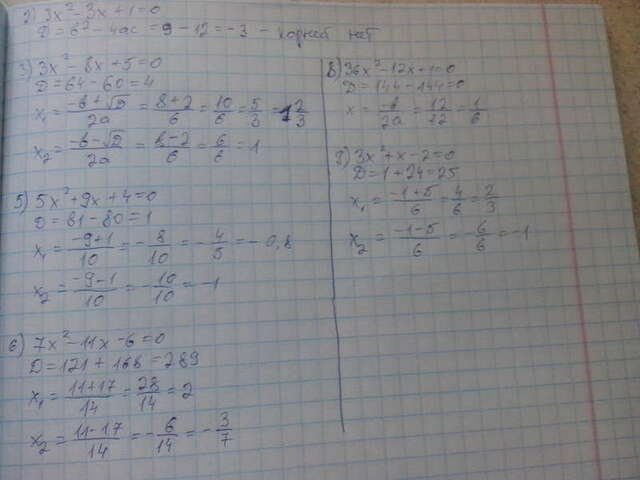 2) 3x² - 3x + 1 = 0
D = b² - 4ac = 9 - 12 = -3 - корней нет
3) 3x² - 8x + 5 = 0
D = 64 - 60 = 4
x₁ = (-b + √D)/2a = (8 + 2)/6 = 10/6 = 5/3 = 1 2/3
x₂ = (-b - √D)/2a = (8 - 2)/6 = 6/6 = 1
5) 5x² + 9x + 4 = 0
D = 81 - 80 = 1
x₁ = (-9 + 1)/10 = -8/10 = -4/5 = -0,8
x₂ = (-9 - 1)/10 = -10/10 = -1
6) 7x² - 11x - 6 = 0
D = 121 + 168 = 289
x₁ = (11 + 17)/14 = 28/14 = 2
x₂ = (11 - 17)/14 = -6/14 = -3/7
8) 36x² - 12x + 1 = 0
D = 144 - 144 = 0
x = -b/2a = 12/72 = 1/6
3x² + x - 2 = 0
D = 1 + 24 = 25
x₁ = (-1 + 5)/6 = 4/6 = 2/3
x₂ = (-1 - 5)/6 = -6/6 = -1